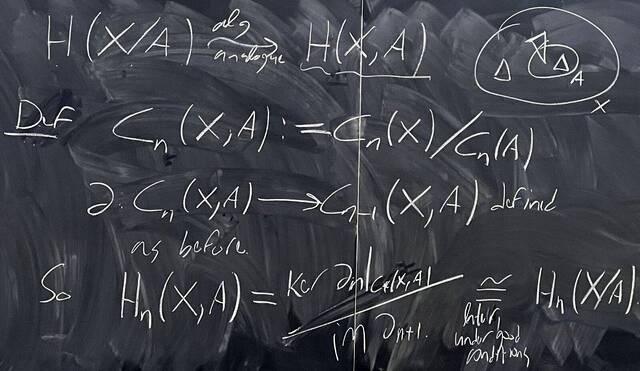 H(X/A) alg analogue → H(X, A)
Δ Δ Δ A X
Def C_n(X, A) := C_n(X)/C_n(A)
∂: C_n(X,A) → C_{n-1}(X,A) defined
as before.
So H_n(X,A) = ker ∂_n|C_*(X,A) / im ∂_{n+1}. ≅ H_n(X/A)
under good
conditions